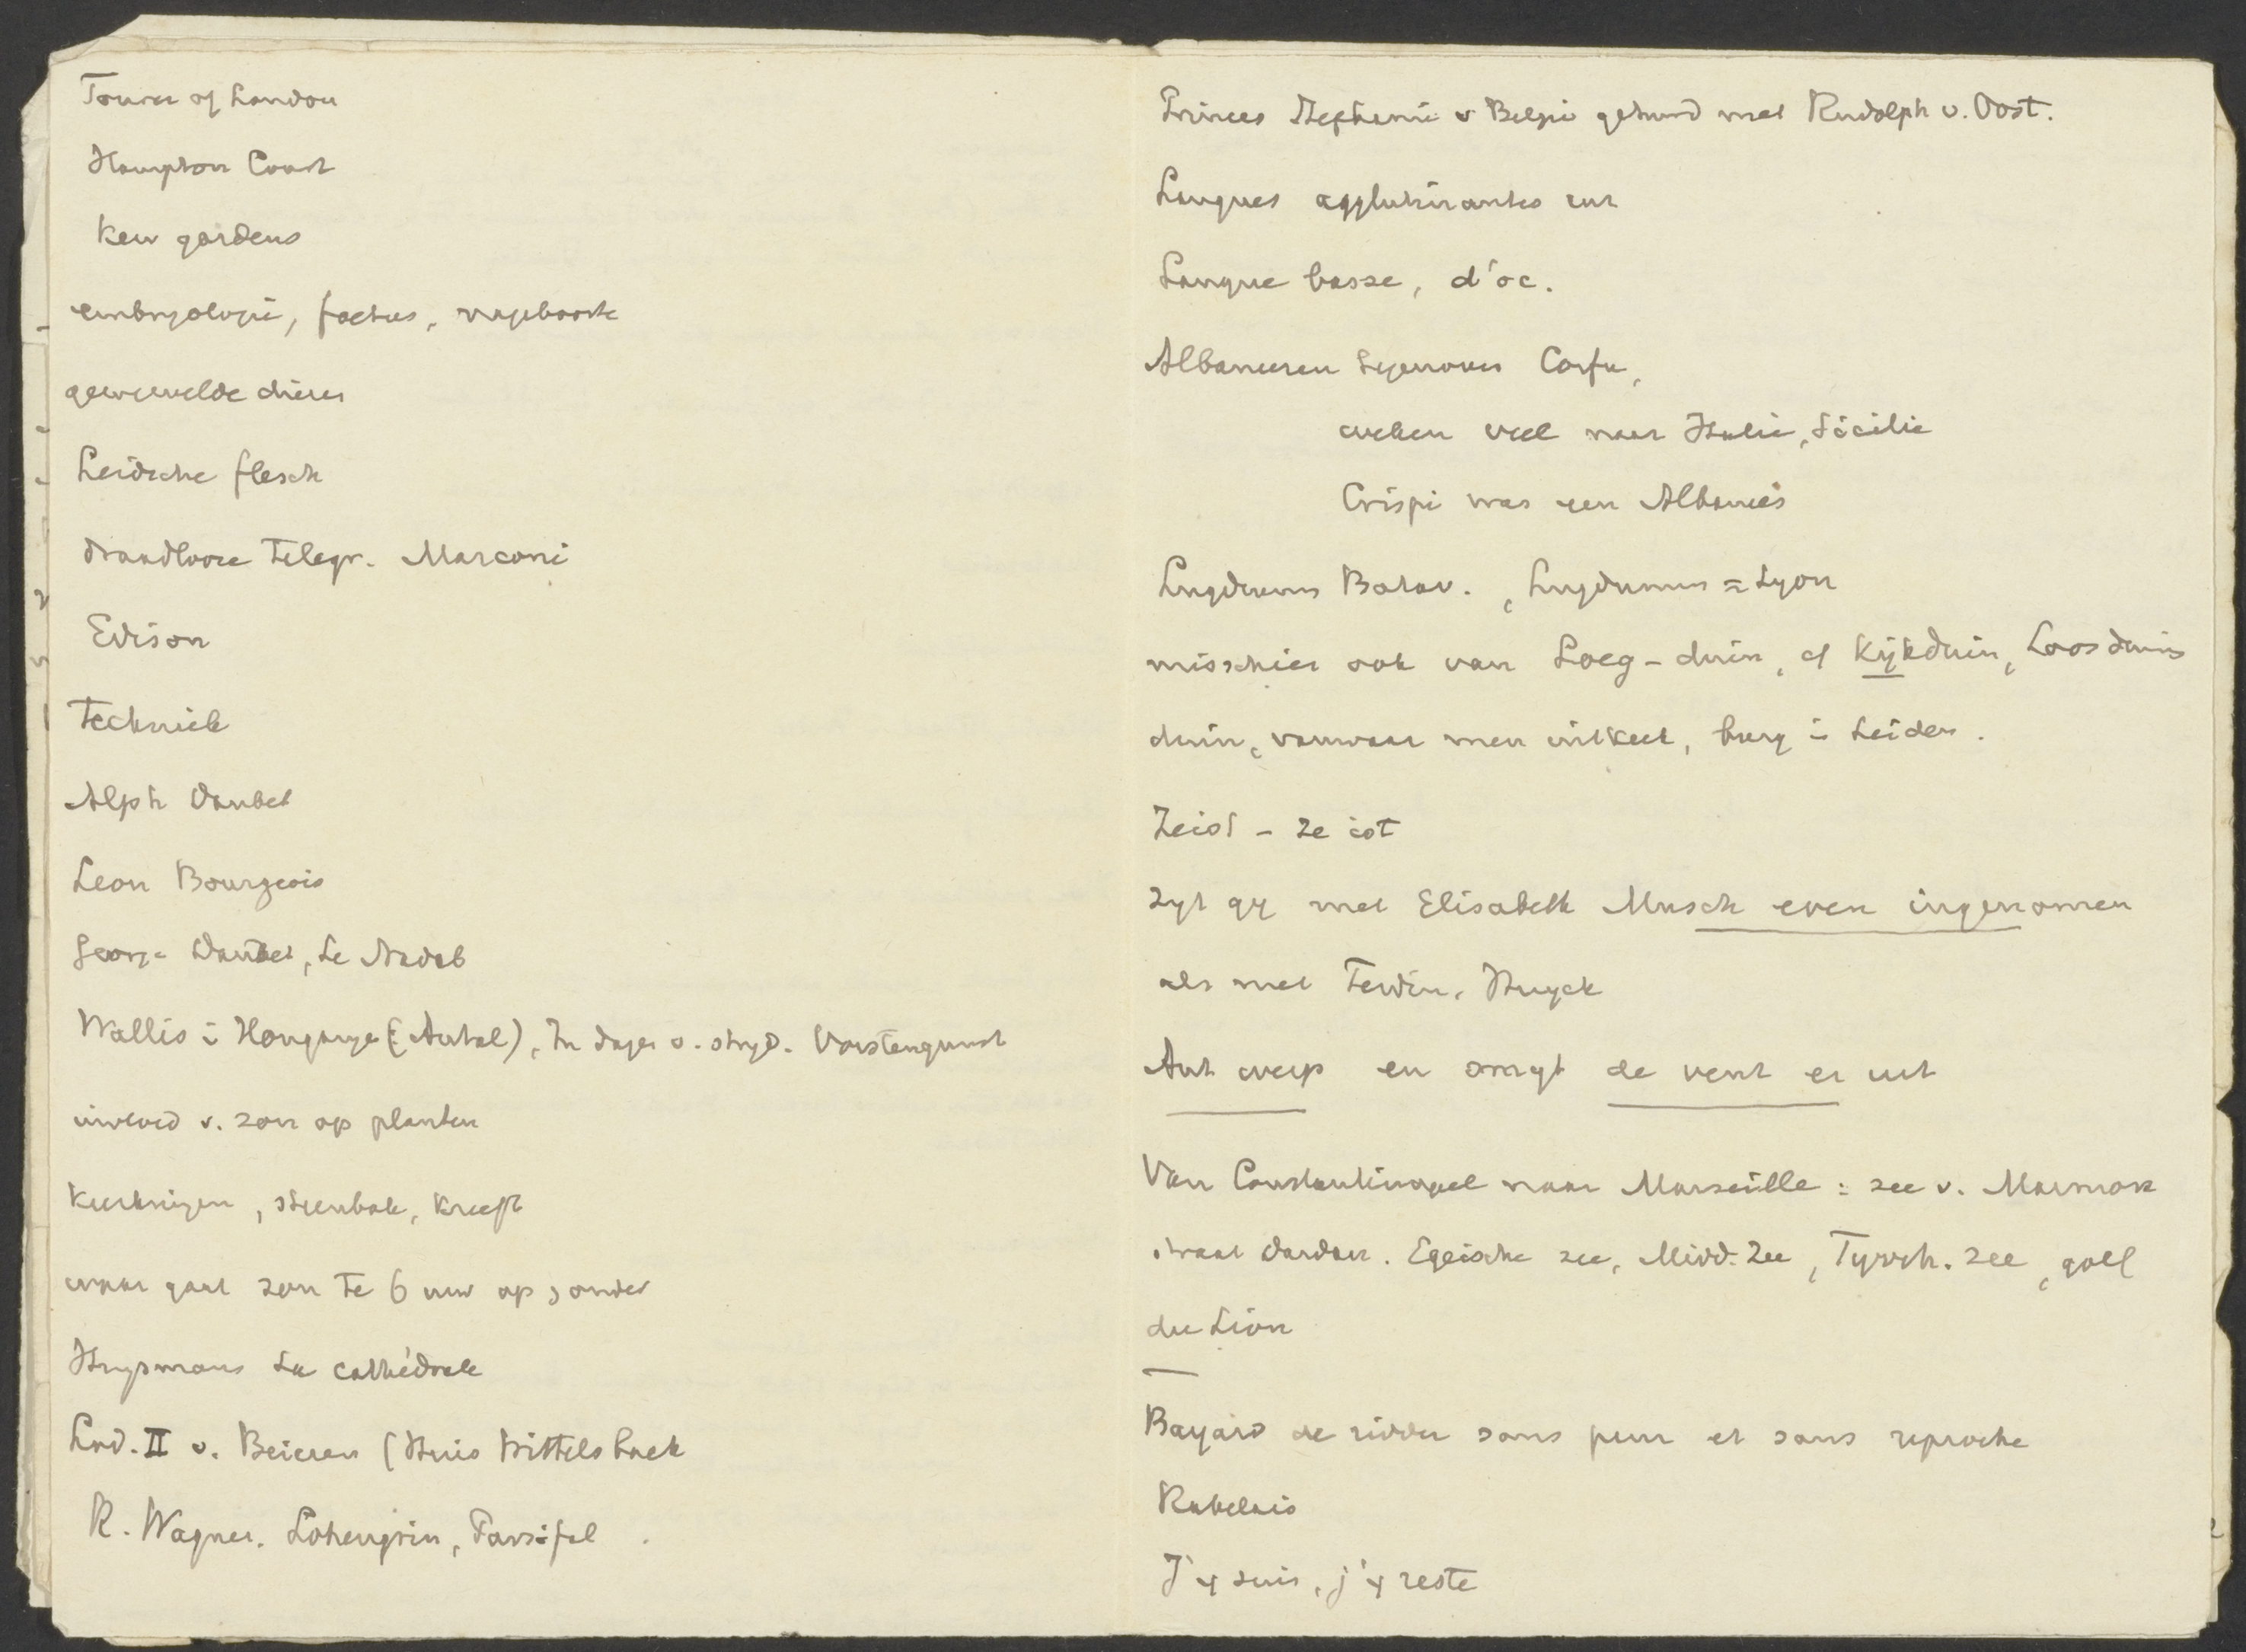 Tower of London
Hampton Court
Kew gardens
embryologie, foetus, nageboorte
gewervelde dieren
Leidsche flesch
draadlooze Telegr. Marconi
Edison
Techniek
Alph Daudet
Leon Bourgeois
George Daudet, Le Nabab
Wallis in Hongarye (Antal), In dagen v. stryd. Vorstengunst
invloed v. zon op planten
Keerkringen, steenbok, kreeft
waar gaat zon te 6 uur op, onder
Huysmans La cathédrale
Lod. II v. Beieren (Huis Wittelsbach
R. Wagner. Lohengrin, Parsifal
Princes Stephanie v België getrouwd met Rudolph v. Oost.
Langues agglutinantes
Langue basse, d'oc.
Albaneezen Corfu,
weken veel naar Italië, Sicilië
Crispi was een Albanees
Lugdunum Batav., Lugdunum = Lyon
misschien ook van Loeg-duin, of Kijkduin, Loosduin
duin, vanwaar men uitkeek, burg in Leiden.
Zeist - ze ist
zyt gy met Elisabeth Musch even ingenomen
als met Ferdin. Huyck
Ant werp en smyt de vent er uit
Van Constantinopel naar Marseille: zee v. Marmora
straat Dardan. Egeische zee, Midd. Zee, Tyrrh. Zee, golf
du Lion
Bayard de ridder sans peur et sans reproche
Rabelais
J'y suis, j'y reste